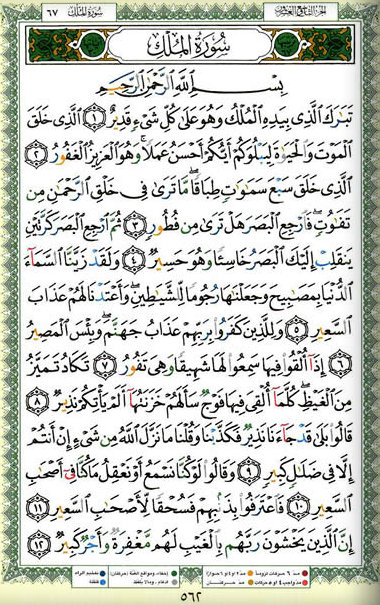 سُورَةُ المُلْكِ ٦٧ الجزء التاسع والعشرون
سُورَةُ المُلْكِ
بِسْمِ ٱللَّهِ ٱلرَّحْمَٰنِ ٱلرَّحِيمِ
تَبَٰرَكَ ٱلَّذِى بِيَدِهِ ٱلْمُلْكُ وَهُوَ عَلَىٰ كُلِّ شَىْءٍ قَدِيرٌ ١ ٱلَّذِى خَلَقَ
ٱلْمَوْتَ وَٱلْحَيَوٰةَ لِيَبْلُوَكُمْ أَيُّكُمْ أَحْسَنُ عَمَلًا وَهُوَ ٱلْعَزِيزُ ٱلْغَفُورُ ٢
ٱلَّذِى خَلَقَ سَبْعَ سَمَٰوَٰتٍ طِبَاقًا مَّا تَرَىٰ فِى خَلْقِ ٱلرَّحْمَٰنِ مِن
تَفَٰوُتٍ فَٱرْجِعِ ٱلْبَصَرَ هَلْ تَرَىٰ مِن فُطُورٍ ٣ ثُمَّ ٱرْجِعِ ٱلْبَصَرَ كَرَّتَيْنِ
يَنقَلِبْ إِلَيْكَ ٱلْبَصَرُ خَاسِئًا وَهُوَ حَسِيرٌ ٤ وَلَقَدْ زَيَّنَّا ٱلسَّمَآءَ
ٱلدُّنْيَا بِمَصَٰبِيحَ وَجَعَلْنَٰهَا رُجُومًا لِّلشَّيَٰطِينِ وَأَعْتَدْنَا لَهُمْ عَذَابَ
ٱلسَّعِيرِ ٥ وَلِلَّذِينَ كَفَرُوا۟ بِرَبِّهِمْ عَذَابُ جَهَنَّمَ وَبِئْسَ ٱلْمَصِيرُ
٦ إِذَآ أُلْقُوا۟ فِيهَا سَمِعُوا۟ لَهَا شَهِيقًا وَهِىَ تَفُورُ ٧ تَكَادُ تَمَيَّزُ
مِنَ ٱلْغَيْظِ كُلَّمَآ أُلْقِىَ فِيهَا فَوْجٌ سَأَلَهُمْ خَزَنَتُهَآ أَلَمْ يَأْتِكُمْ نَذِيرٌ ٨
قَالُوا۟ بَلَىٰ قَدْ جَآءَنَا نَذِيرٌ فَكَذَّبْنَا وَقُلْنَا مَا نَزَّلَ ٱللَّهُ مِن شَىْءٍ إِنْ أَنتُمْ
إِلَّا فِى ضَلَٰلٍ كَبِيرٍ ٩ وَقَالُوا۟ لَوْ كُنَّا نَسْمَعُ أَوْ نَعْقِلُ مَا كُنَّا فِىٓ أَصْحَٰبِ
ٱلسَّعِيرِ ١٠ فَٱعْتَرَفُوا۟ بِذَنۢبِهِمْ فَسُحْقًا لِّأَصْحَٰبِ ٱلسَّعِيرِ ١١
إِنَّ ٱلَّذِينَ يَخْشَوْنَ رَبَّهُم بِٱلْغَيْبِ لَهُم مَّغْفِرَةٌ وَأَجْرٌ كَبِيرٌ ١٢
٥٦٢